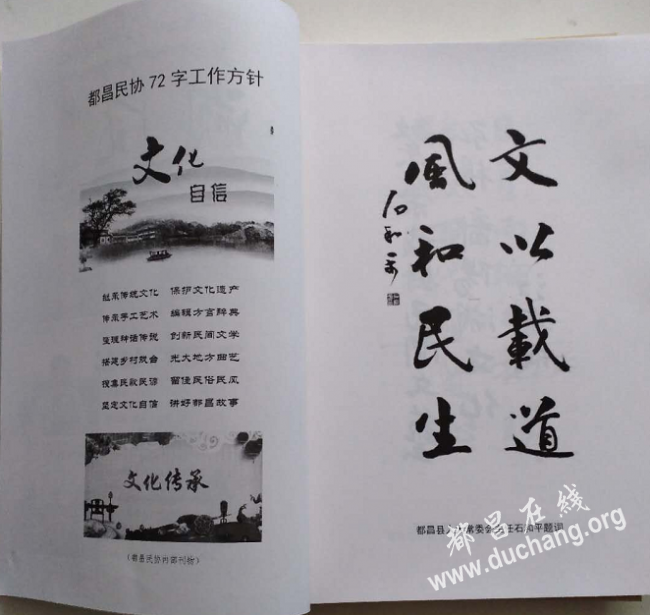 都昌民协72字工作方针
文化
自信
继承传统文化 保护文化遗产
传承手工艺术 编辑方言辞典
整理神话传说 创新民间文学
搭建乡村戏台 光大地方曲艺
搜集民歌民谣 留住民俗民风
坚定文化自信 讲好都昌故事
文化传承
(都昌民协内部刊物)
文以載道
風和民生
石和平
都昌县人大常委会主任石和平题词
都昌在线
www.duchang.org